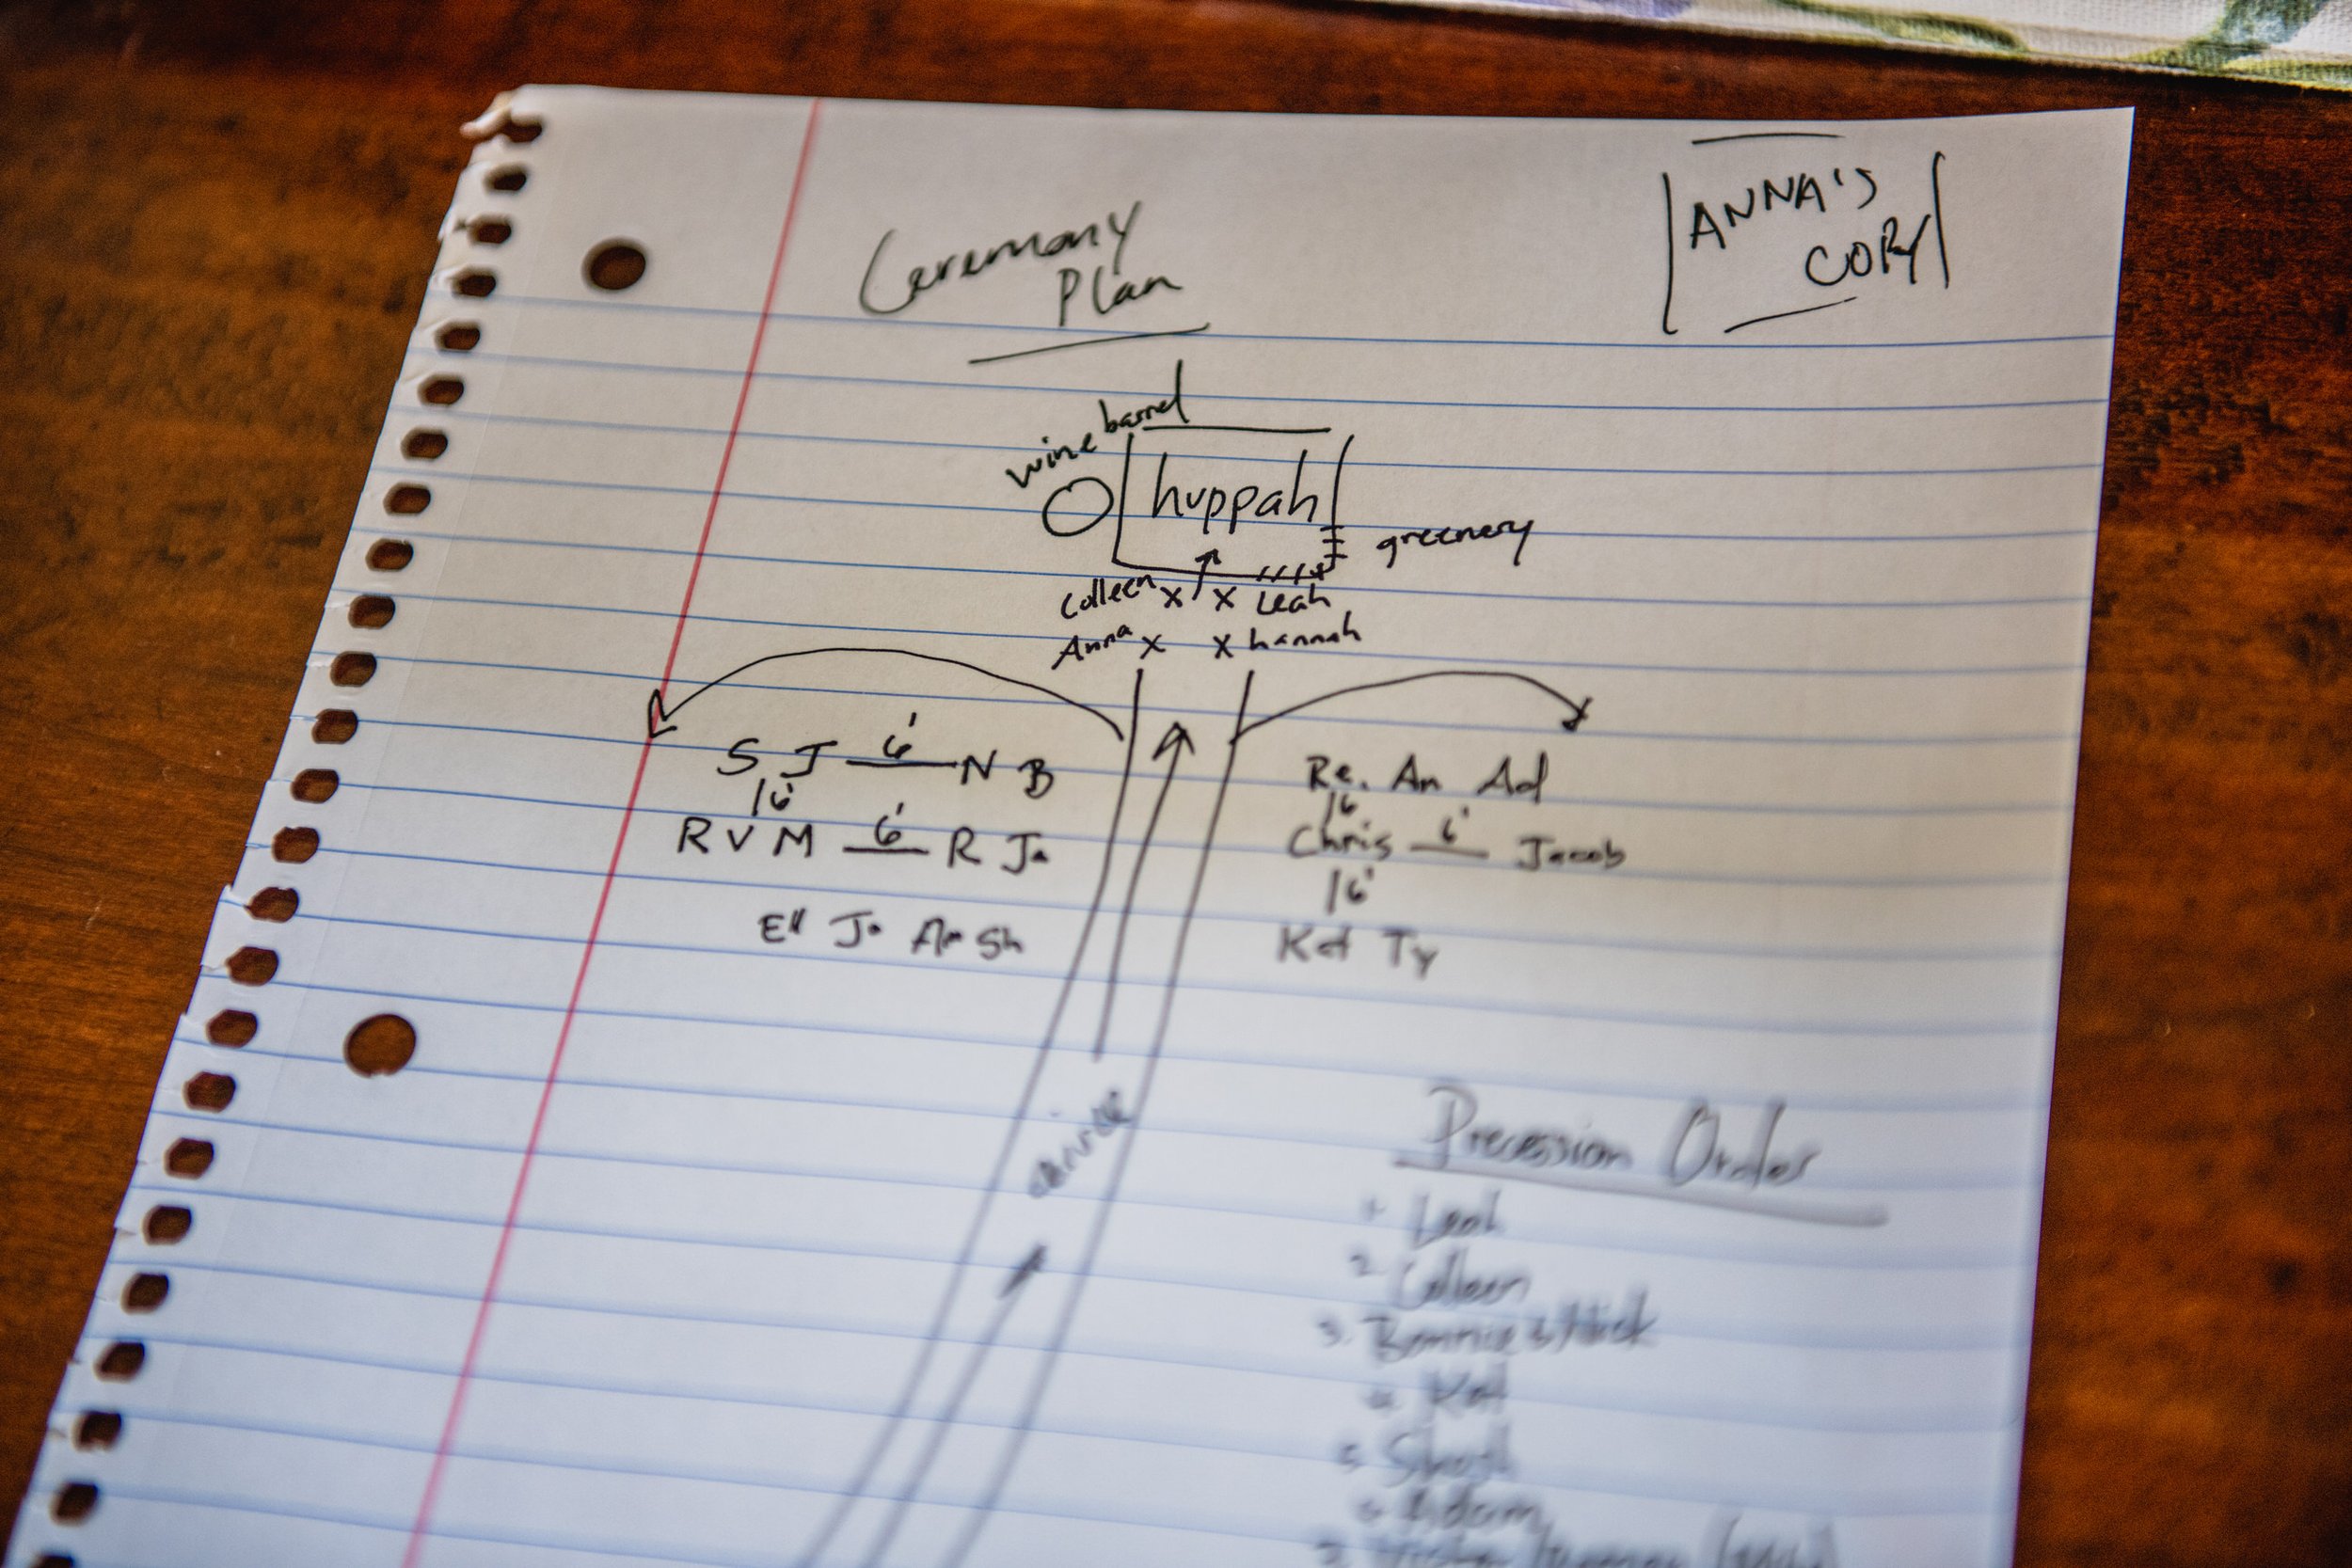 Ceremony
Plan
ANNA'S
COPY
wine barrel
huppah
greenery
Colleen x x Leah
Anna x x hannah
S J 6' N B
16'
R V M 6' R Ja
Ell Ja Am Sh
Re. An Ad
16'
Chris 6' Jacob
16'
Kat Ty
Precession Order
1. Leah
2. Colleen
3. Bonnie & Nick
4. Kat
5. Shosh
6. Adam